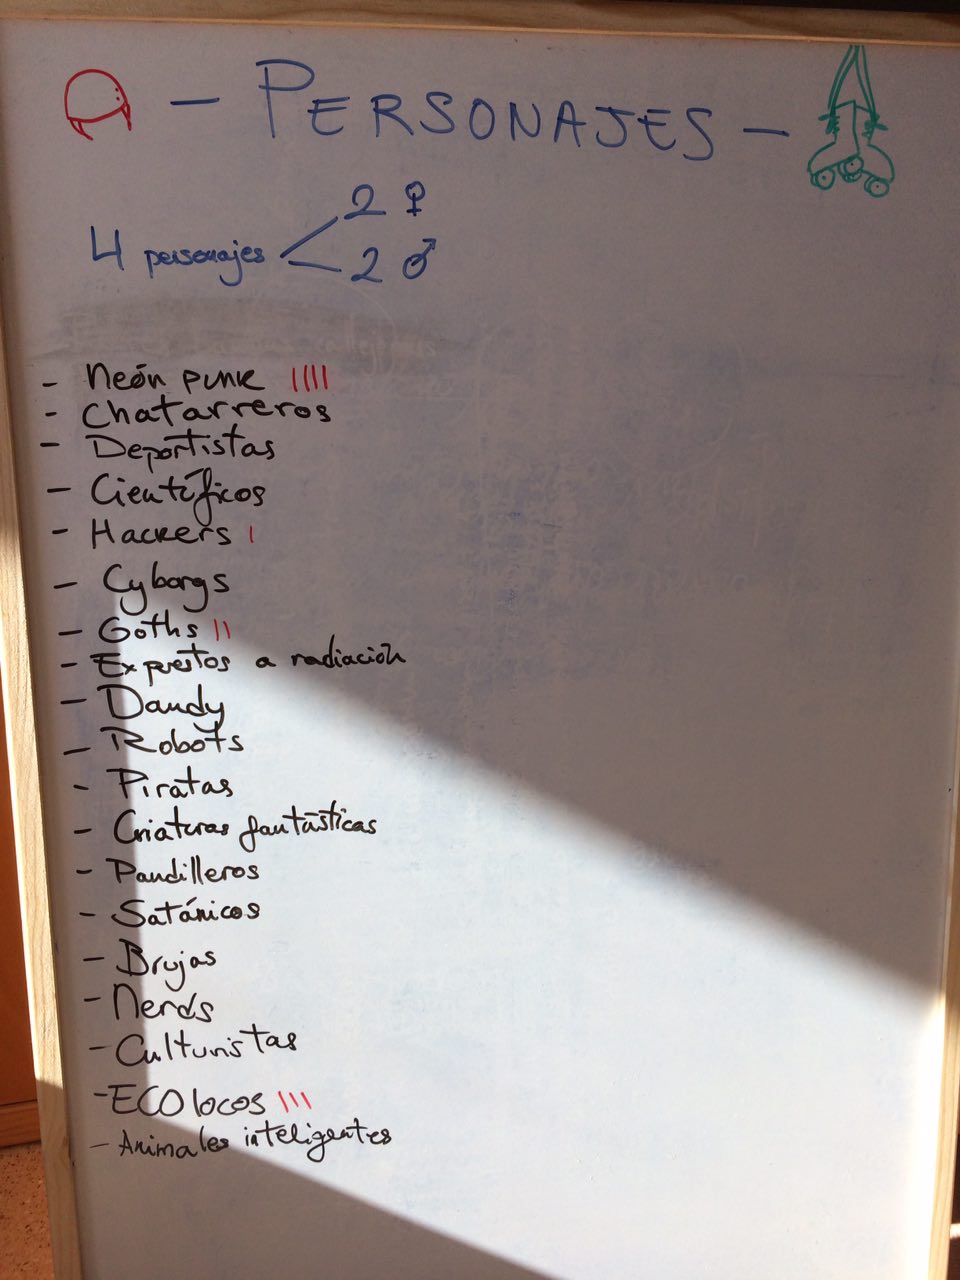 - PERSONAJES -
4 personajes < 2 ♀
2 ♂
- Neón punk ||||
- Chatarreros
- Deportistas
- Científicos
- Hackers |
- Cyborgs
- Goths ||
- Expuestos a radiación
- Dandy
- Robots
- Piratas
- Criaturas fantásticas
- Pandilleros
- Satánicos
- Brujas
- Nerds
- Culturistas
- ECOlocos |||
- Animales inteligentes